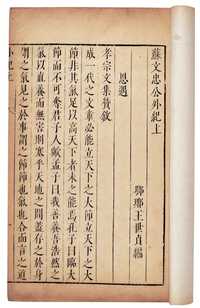 蘇文忠公外紀上
鄒瑯王世貞編
恩遇
孝宗文集贊敘
成一代之文章必能立天下之大節立天下之大
節非其氣足以高天下者未之能焉孔子曰臨大
節而不可奪君子人歟孟子曰我善養吾浩然之
氣以直養而無害則塞乎天地之間蓋存之於身
謂之氣見之於事謂之節節也氣也合而言之道